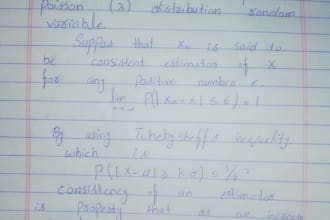 Poisson (λ) distribution random
variable.
Suppos that xn is said to
be consistent estimator of X
for any Positive number ε.
lim P(|xn-x| ≤ ε) = 1
n→∞
By using Tchebysheff's inequality
which is
P(|X-μ| ≥ kσ) ≤ 1/k²
consistency of an estimator
is Property that as